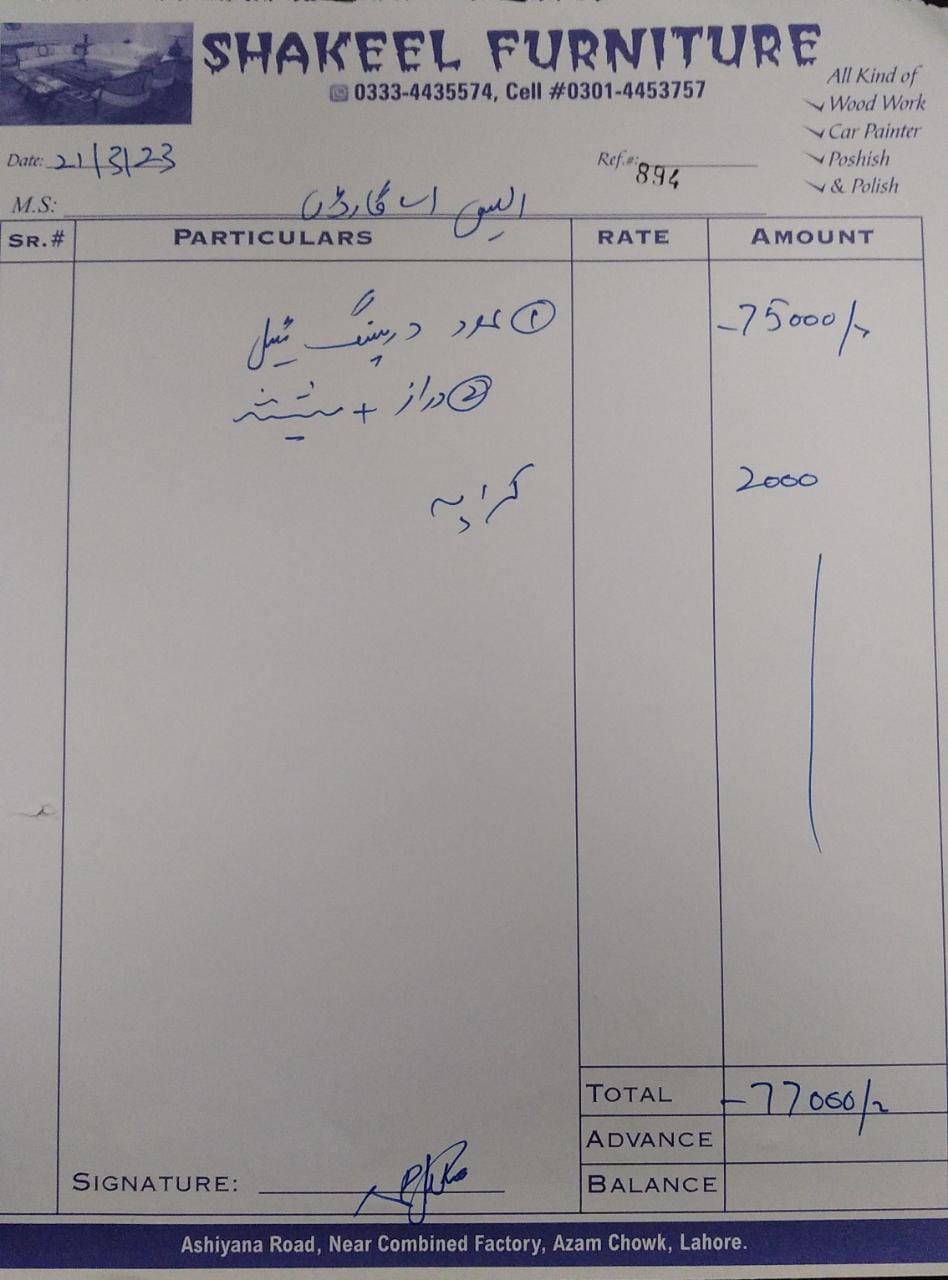 SHAKEEL FURNITURE
0333-4435574, Cell #0301-4453757
All Kind of
Wood Work
Car Painter
Poshish
& Polish
Date: 21/3/23
Ref.#: 894
M.S: ایس اے گارڈن
SR.# PARTICULARS RATE AMOUNT
① عدد ڈریسنگ ٹیبل -75000/-
② دراز + شیشہ
کرایہ 2000
TOTAL -77000/-
ADVANCE
SIGNATURE: BALANCE
Ashiyana Road, Near Combined Factory, Azam Chowk, Lahore.